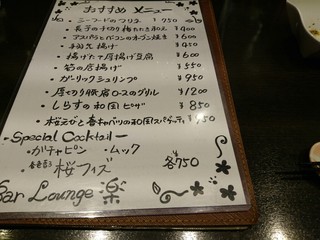 おすすめ メニュー
・シーフードのマリネ ¥750
・長芋の千切り梅たたき和え ¥400
・アスパラとベーコンのオーブン焼き ¥600
・手羽先揚げ ¥450
・揚げたて厚揚げ豆腐 ¥600
・筍の唐揚げ ¥550
・ガーリックシュリンプ ¥950
・厚切り豚肩ロースのグリル ¥1200
・しらすの和風ピザ ¥850
・桜えびと春キャベツの和風スパゲッティ
・Special Cocktail
・ガチャピン ・ムック
・桜フィズ 各¥750
Bar Lounge 楽